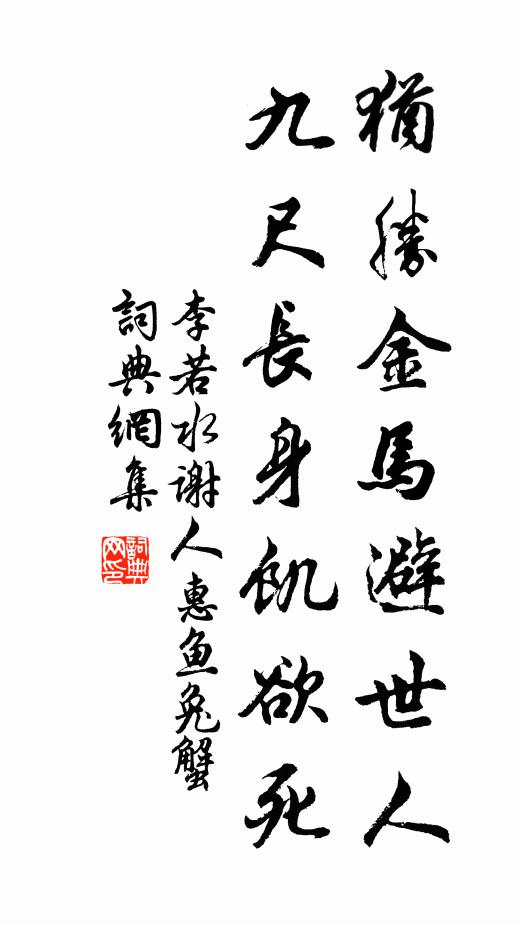 猶勝金馬避世人
九尺長身飢欲死
李若水谢人惠鱼兔蟹
詞典網集
詞典网印